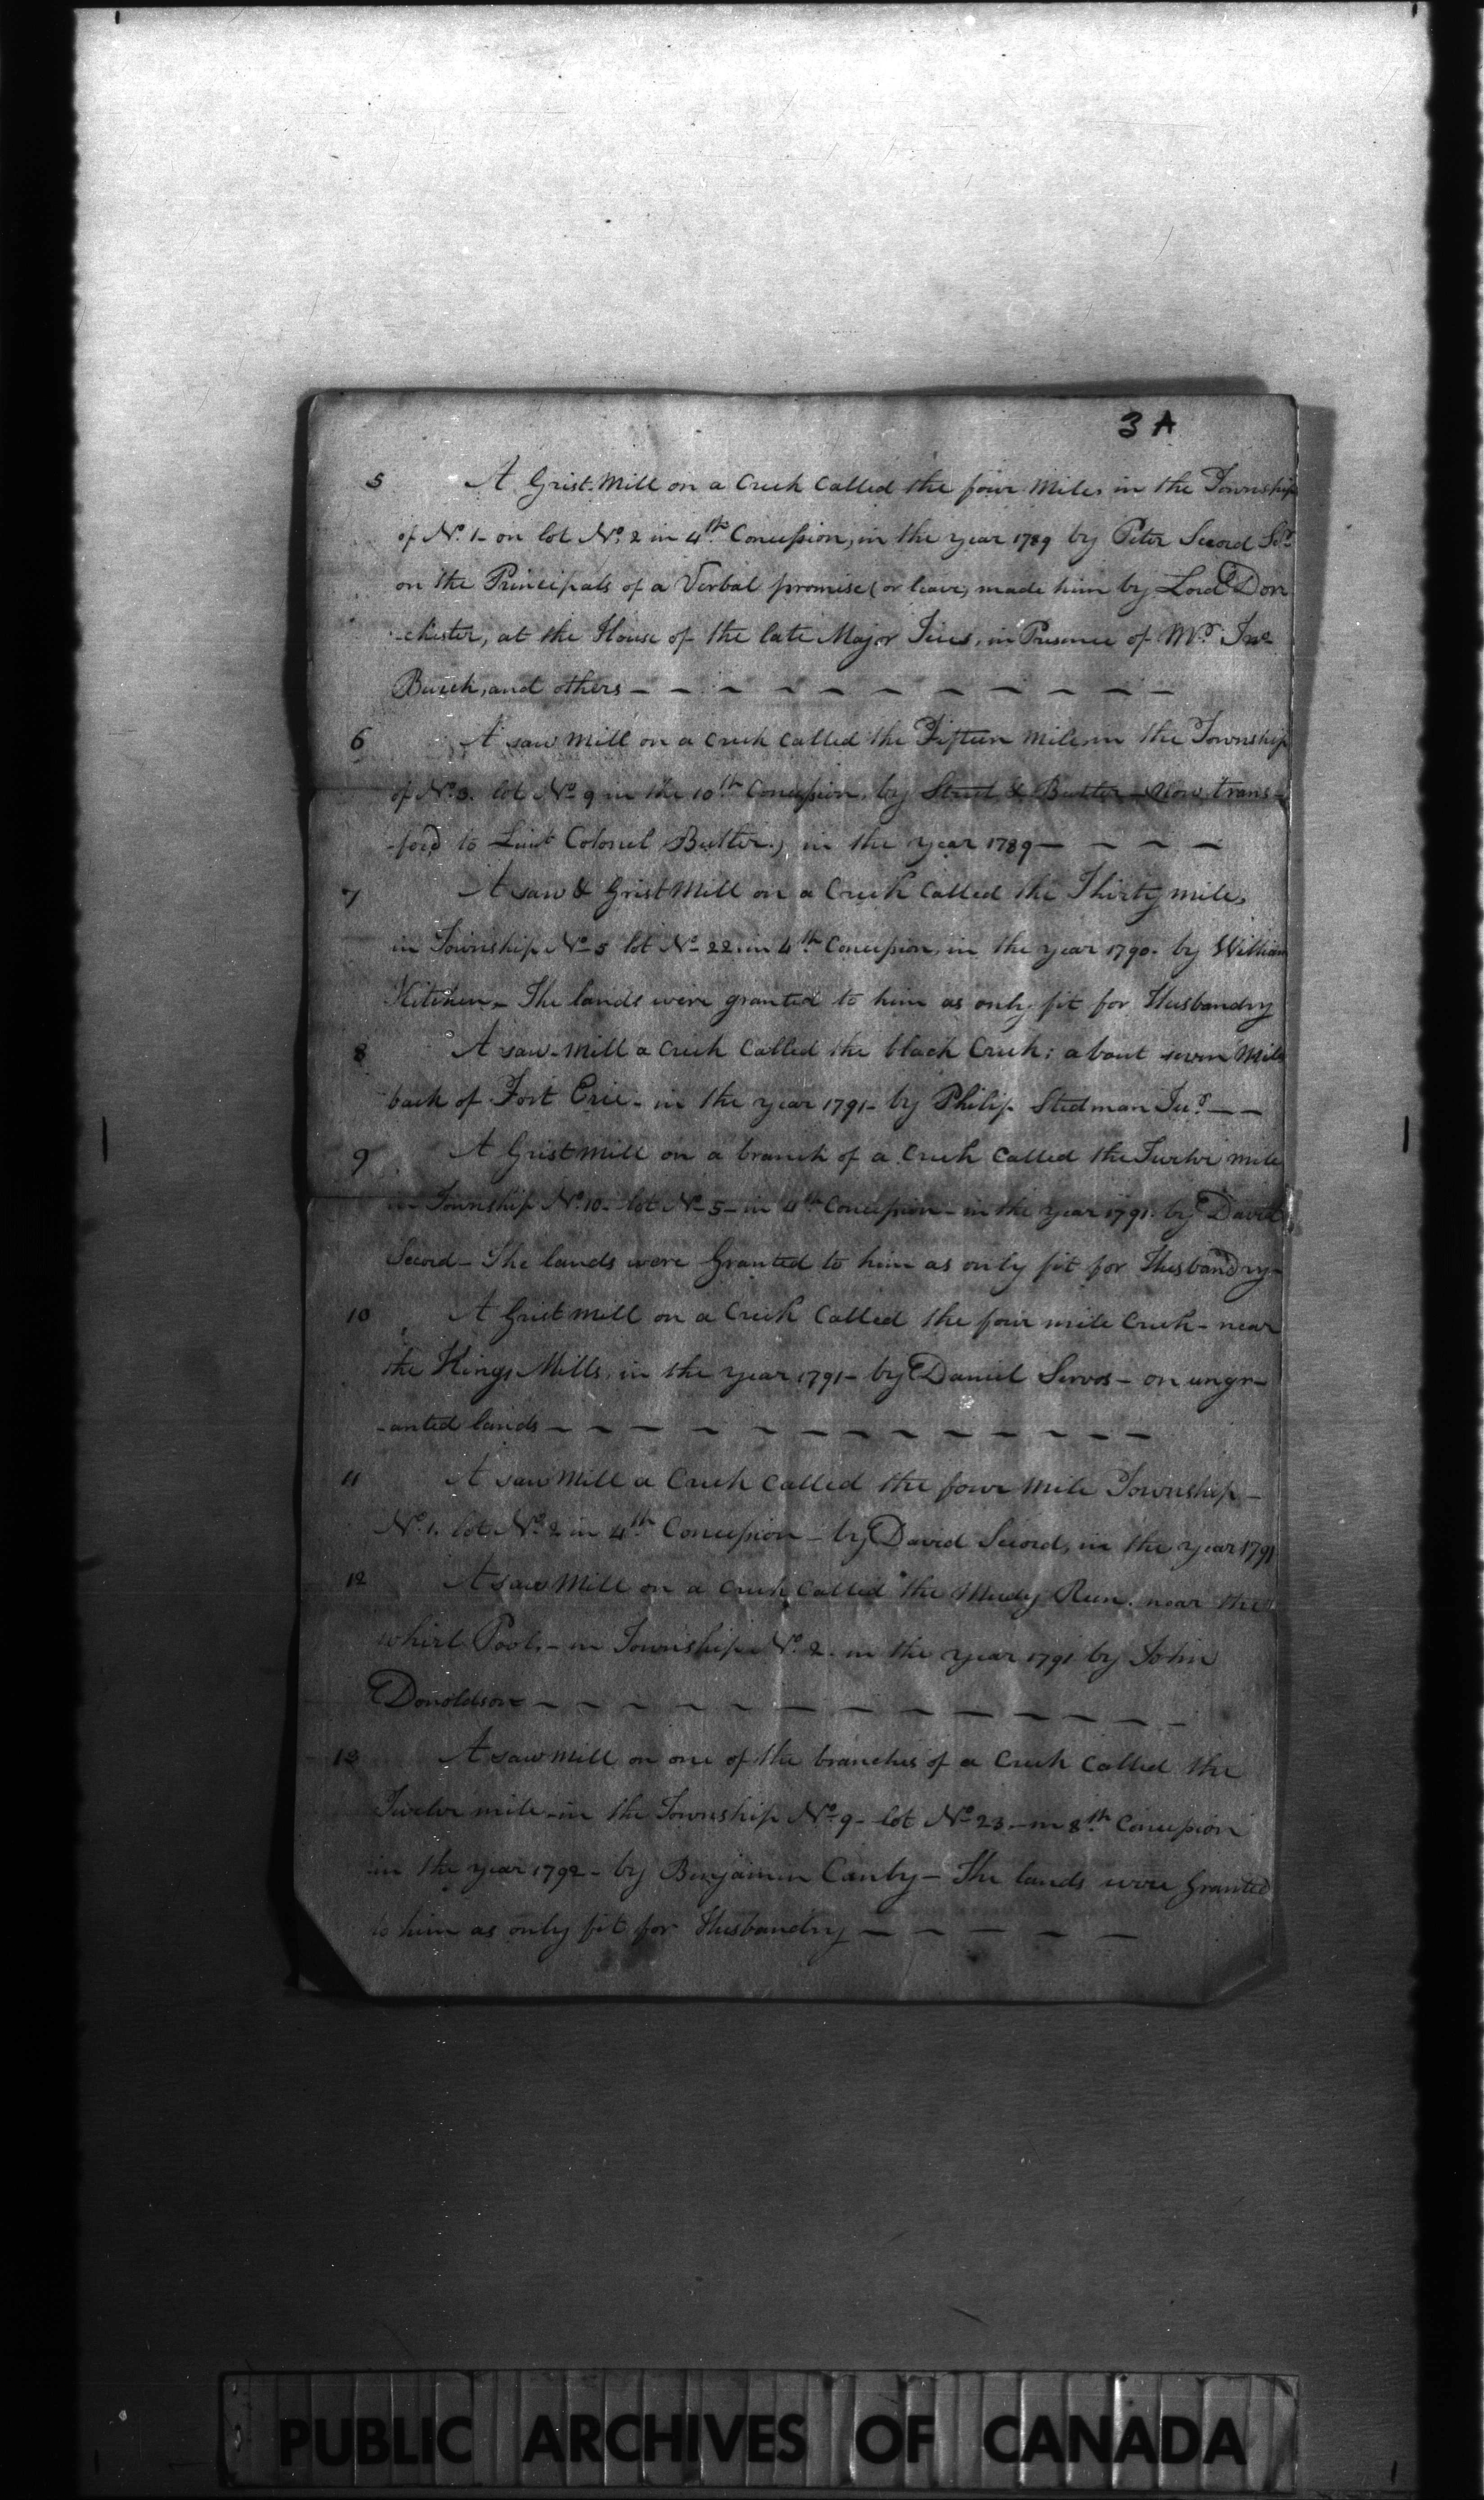 3 A
5 A Grist Mill on a Creek Called the four Mile, in the Township
of No. 1 - on lot No. 2 in 4th Concession, in the year 1789 by Peter Secord Senr
on the Principals of a Verbal promise (or leave) made him by Lord Dor
-chester, at the House of the late Major Tice, in Presence of Mr. Jno
Burch, and others - - - - - - - - - - -
6 A saw Mill on a Creek Called the Fifteen Mile, in the Township
of No. 3. lot No. 9 in the 10th Concession, by Street & Butler - Now trans-
-ferd to Lieut Colonel Butler.) in the year 1789 - - - -
7 A saw & Grist Mill on a Creek Called the Thirty mile,
in Township No. 5 lot No. 22. in 4th Concession, in the year 1790. by William
Kitchen - The lands were granted to him as only fit for Husbandry
8 A saw-Mill a Creek Called the black Creek; about seven Mile
back of Fort Erie - in the year 1791 - by Philip Stedman Junr - -
9 A Grist mill on a branch of a Creek Called the Twelve mile
in Township No. 10 - lot No. 5 - in 4th Concession - in the year 1791. by David
Secord - The lands were Granted to him as only fit for Husbandry -
10 A Grist mill on a Creek Called the four mile Creek - near
the Kings Mills, in the year 1791 - by Daniel Servos - on ungr-
-anted lands - - - - - - - - - - - -
11 A saw Mill a Creek Called the four Mile Township -
No. 1. lot No. 2 in 4th Concession - by David Secord, in the year 1791
12 A saw Mill on a Creek Called the Mudy Run. near the
whirl Pool, - in Township No. 2. in the year 1791 by John
Donoldson - - - - - - - - - - - -
13 A saw mill on one of the branches of a Creek Called the
Twelve mile - in the Township No. 9 - lot No. 23 - in 8th Concession
in the year 1792 - by Benjamin Canby - The lands were Granted
to him as only fit for Husbandry - - - - -
PUBLIC ARCHIVES OF CANADA